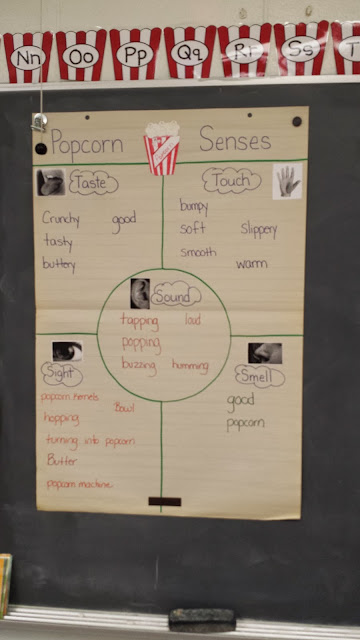 Nn Oo Pp Qq Rr Ss T
Popcorn Senses
Taste
Crunchy good
tasty
buttery
Touch
bumpy
soft slippery
smooth
warm
Sound
tapping loud
popping
buzzing humming
Sight
popcorn kernels
Bowl
hopping
turning into popcorn
Butter
popcorn machine
Smell
good
popcorn